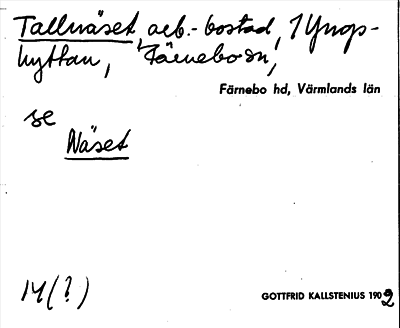 Tallnäset, arb.-bostad, 1 Yngs-
hyttan, Färnebo sn,
Färnebo hd, Värmlands län
se
Näset
14(?)
GOTTFRID KALLSTENIUS 1902